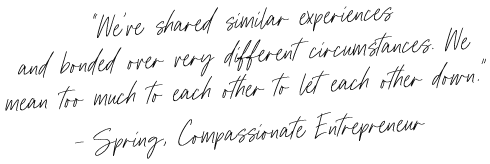 "We've shared similar experiences
and bonded over very different circumstances. We
mean too much to each other to let each other down."
- Spring, Compassionate Entrepreneur